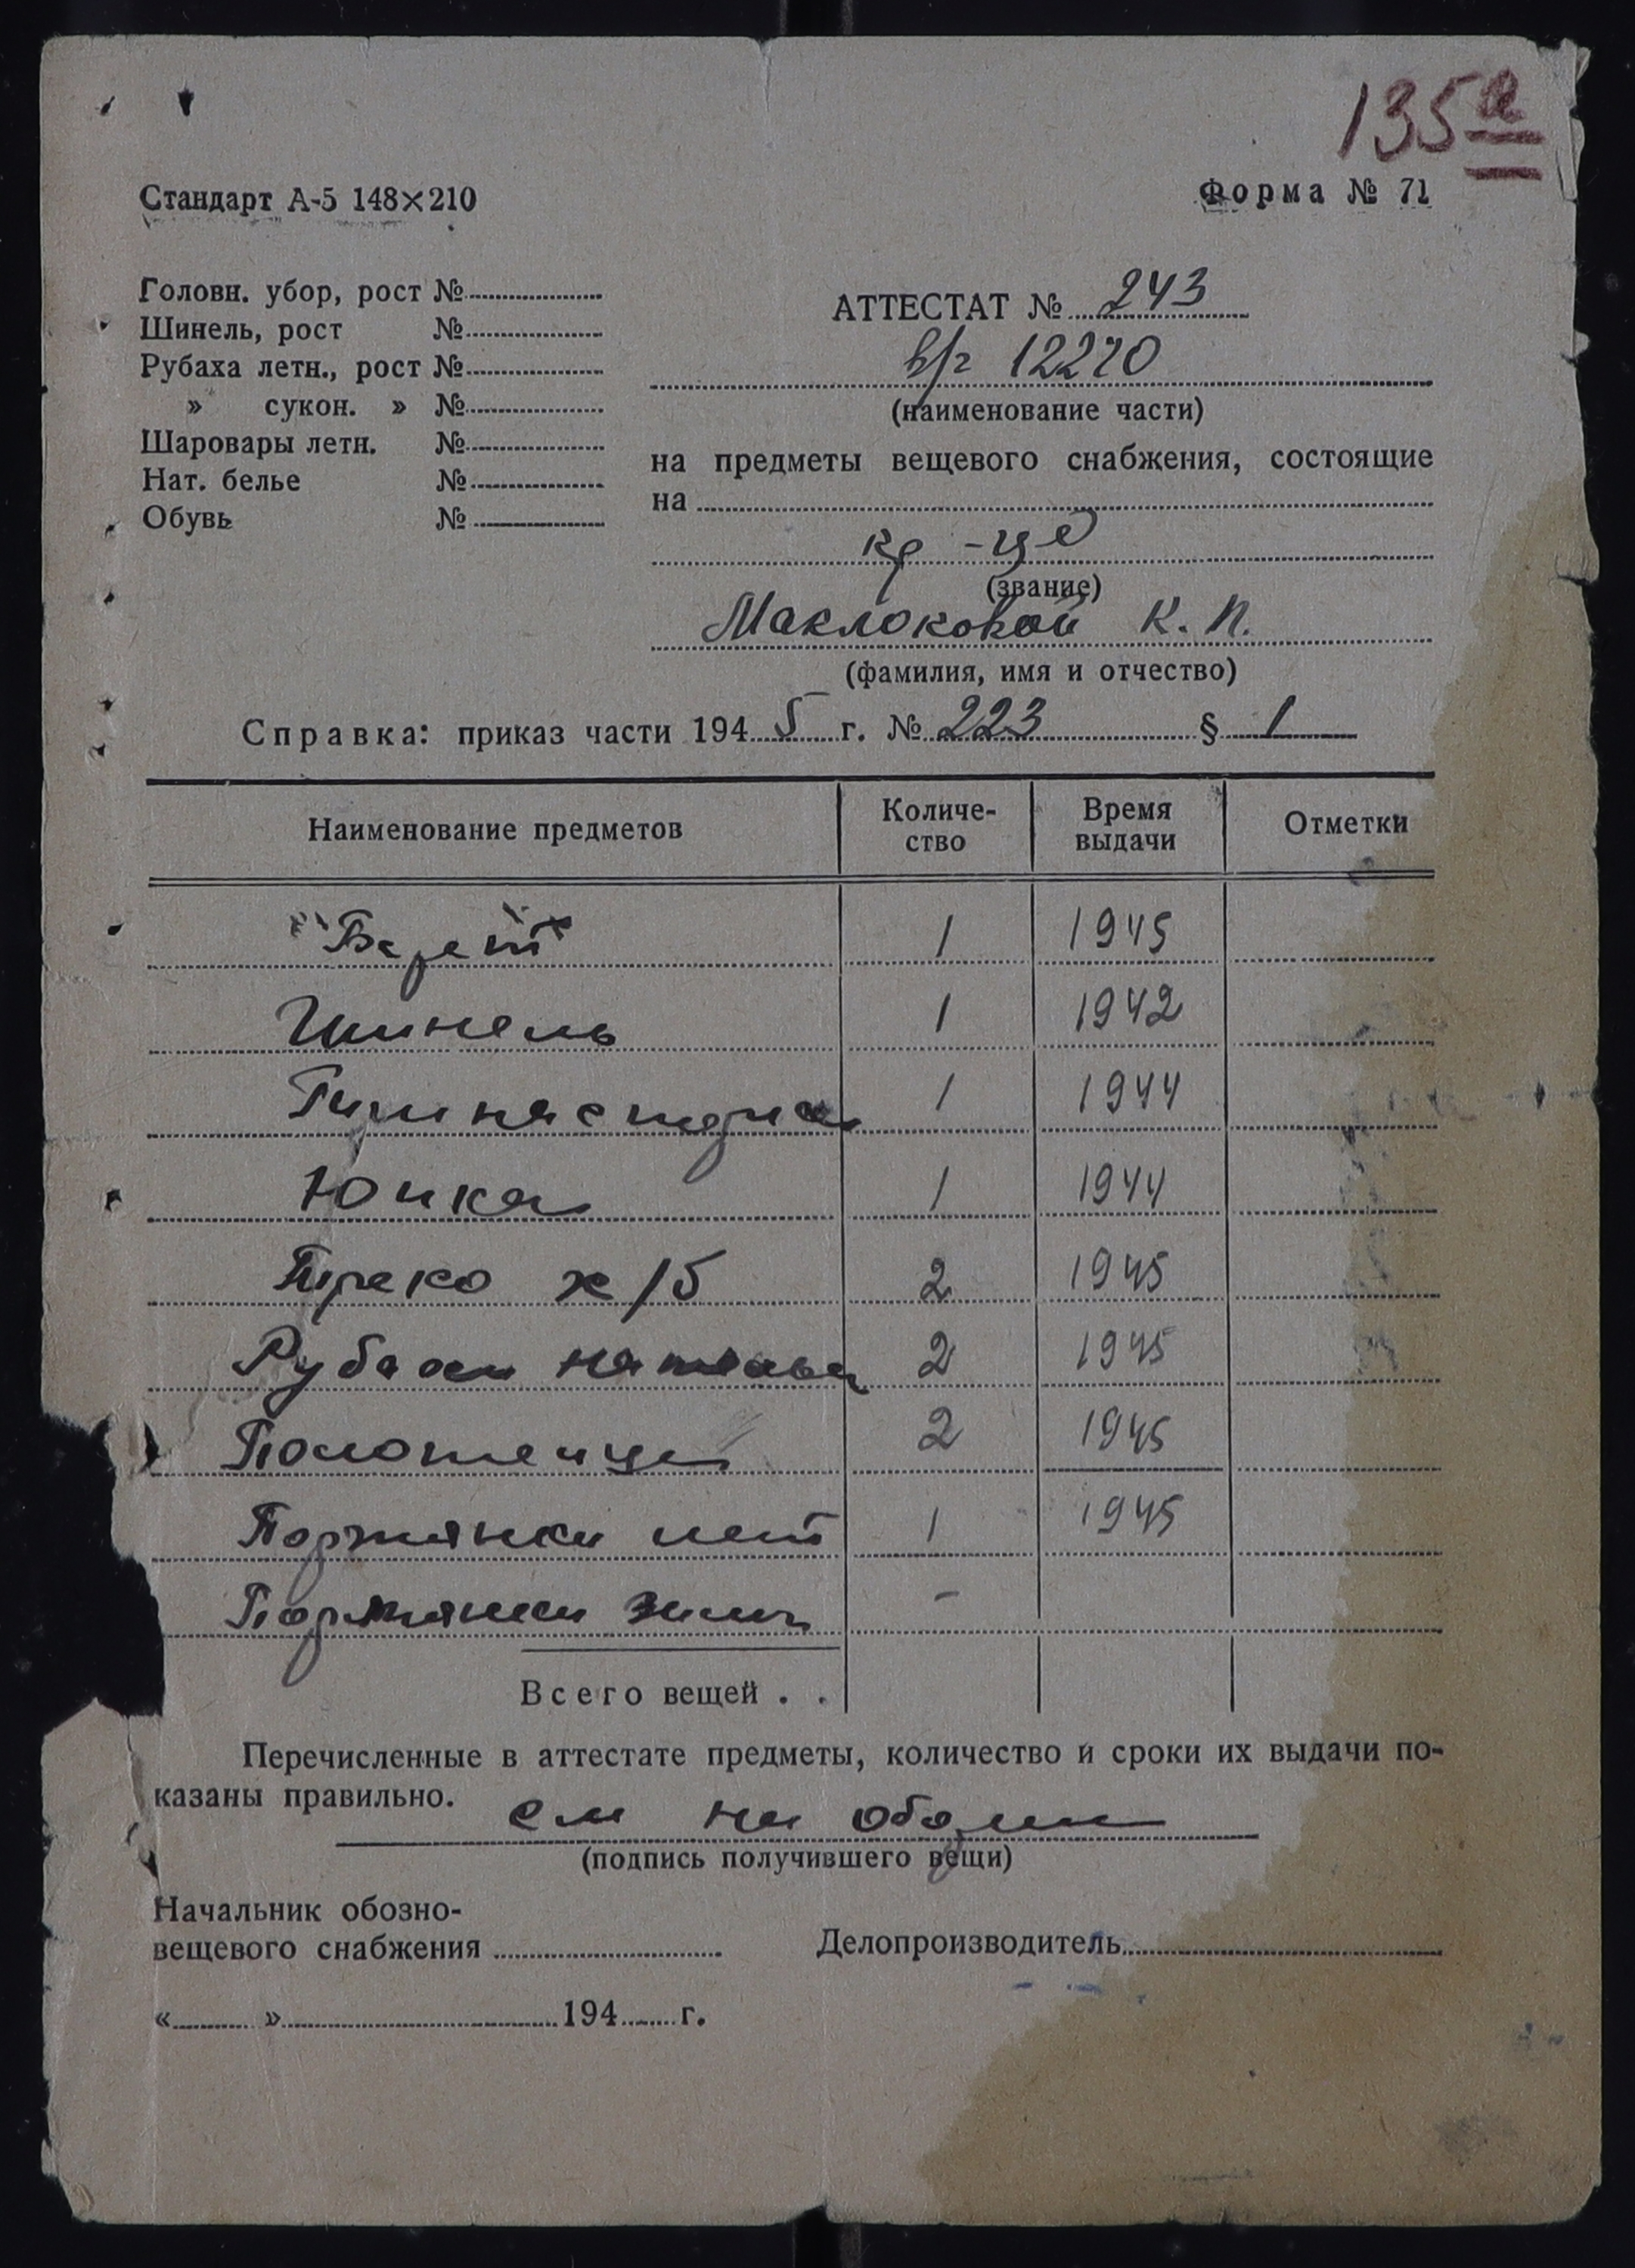 135а
Стандарт А-5 148×210
Форма № 71
Головн. убор, рост №
Шинель, рост №
Рубаха летн., рост №
» сукон. » №
Шаровары летн. №
Нат. белье №
Обувь №
АТТЕСТАТ № 243
в/г 12270
(наименование части)
на предметы вещевого снабжения, состоящие
на
кр-це
(звание)
Маклоковой К. П.
(фамилия, имя и отчество)
Справка: приказ части 1945 г. № 223 § 1
Наименование предметов Количе-ство Время выдачи Отметки
"Берет" 1 1945
Шинель 1 1942
Гимнастерка 1 1944
Юпка 1 1944
Треко х/б 2 1945
Рубахи 2 1945
Полотенце 2 1945
Портянки лет 1 1945
Портянки зимн -
Всего вещей . .
Перечисленные в аттестате предметы, количество и сроки их выдачи по-
казаны правильно.
см на обор
(подпись получившего вещи)
Начальник обозно-
вещевого снабжения
Делопроизводитель
« » 194 г.